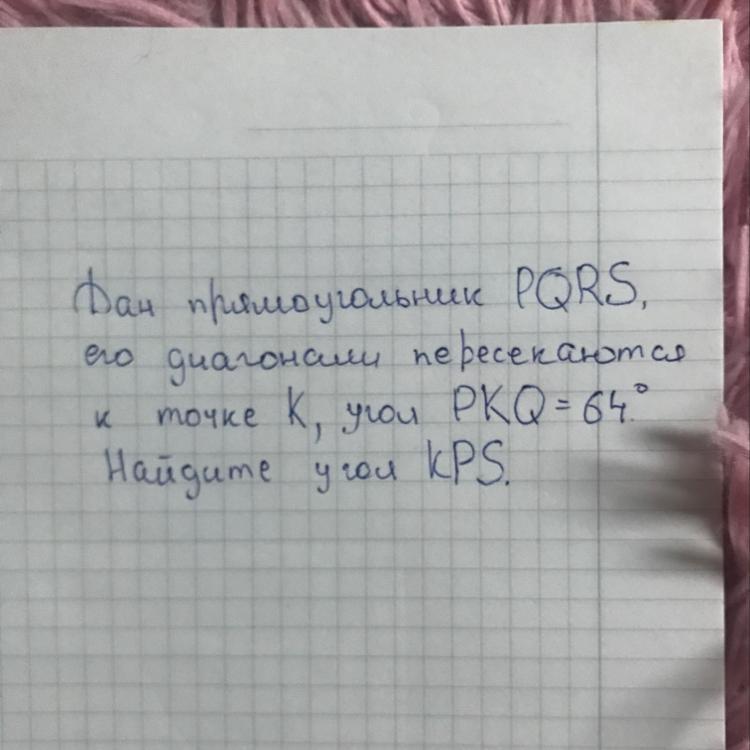 Дан прямоугольник PQRS,
его диагонали пересекаются
к точке K, угол PKQ = 64°.
Найдите угол KPS.